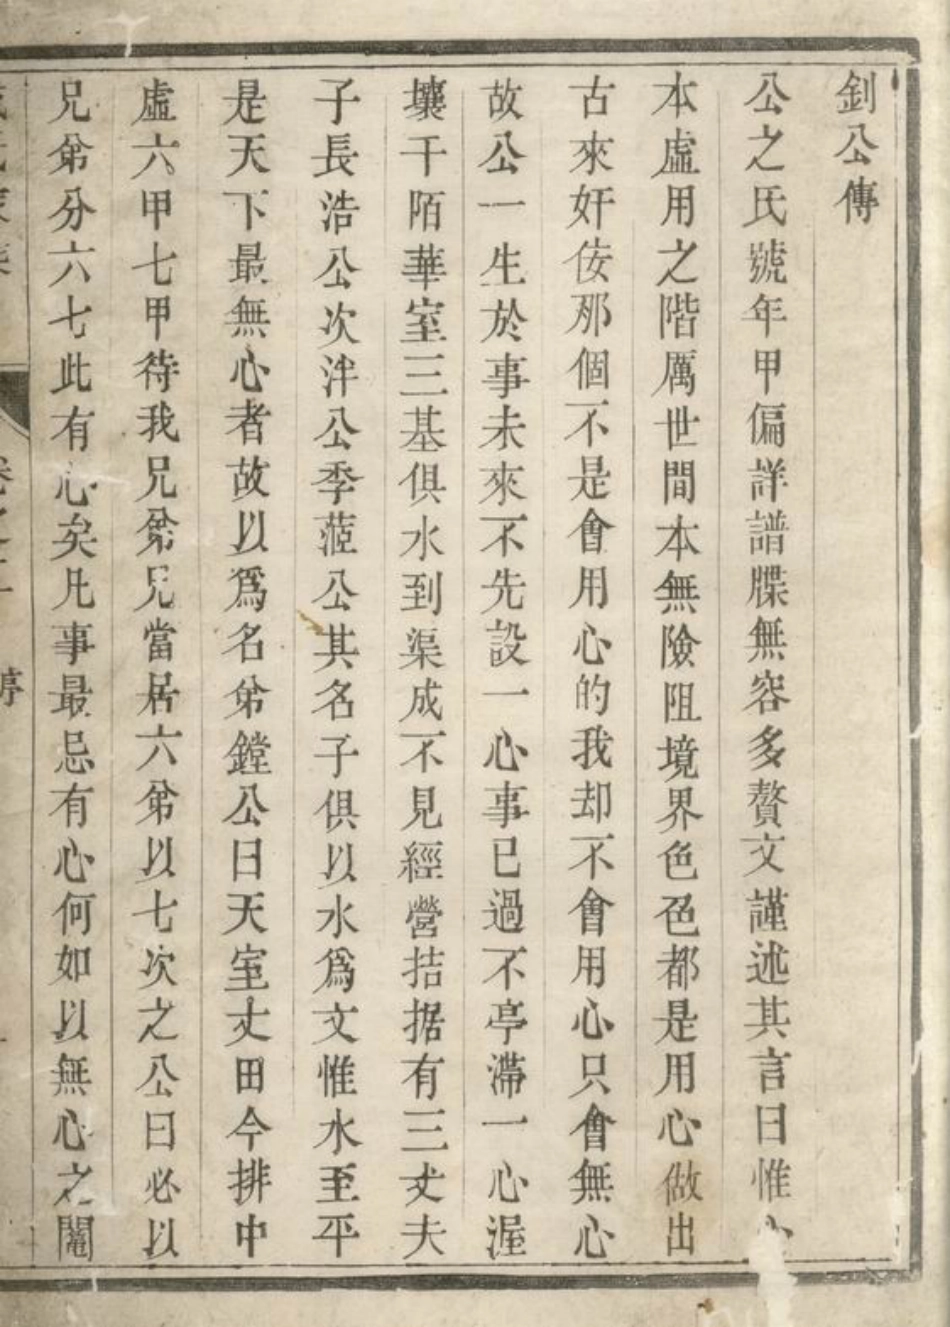 釗公傳
公之氏號年甲偏詳譜牒無容多贅文謹述其言曰惟心
本虛用之階厲世間本無險阻境界色色都是用心做出
古來奸佞那個不是會用心的我却不會用心只會無心
故公一生於事未來不先設一心事已過不亭滯一心渥
壤千陌華室三基俱水到渠成不見經營拮据有三丈夫
子長浩公次泮公季蒞公其名子俱以水爲文惟水至平
是天下最無心者故以爲名弟鏜公曰天室丈田今排中
虛六甲七甲待我兄弟兄當居六弟以七次之公曰必以
兄弟分六七此有心矣凡事最忌有心何如以無心之鬮